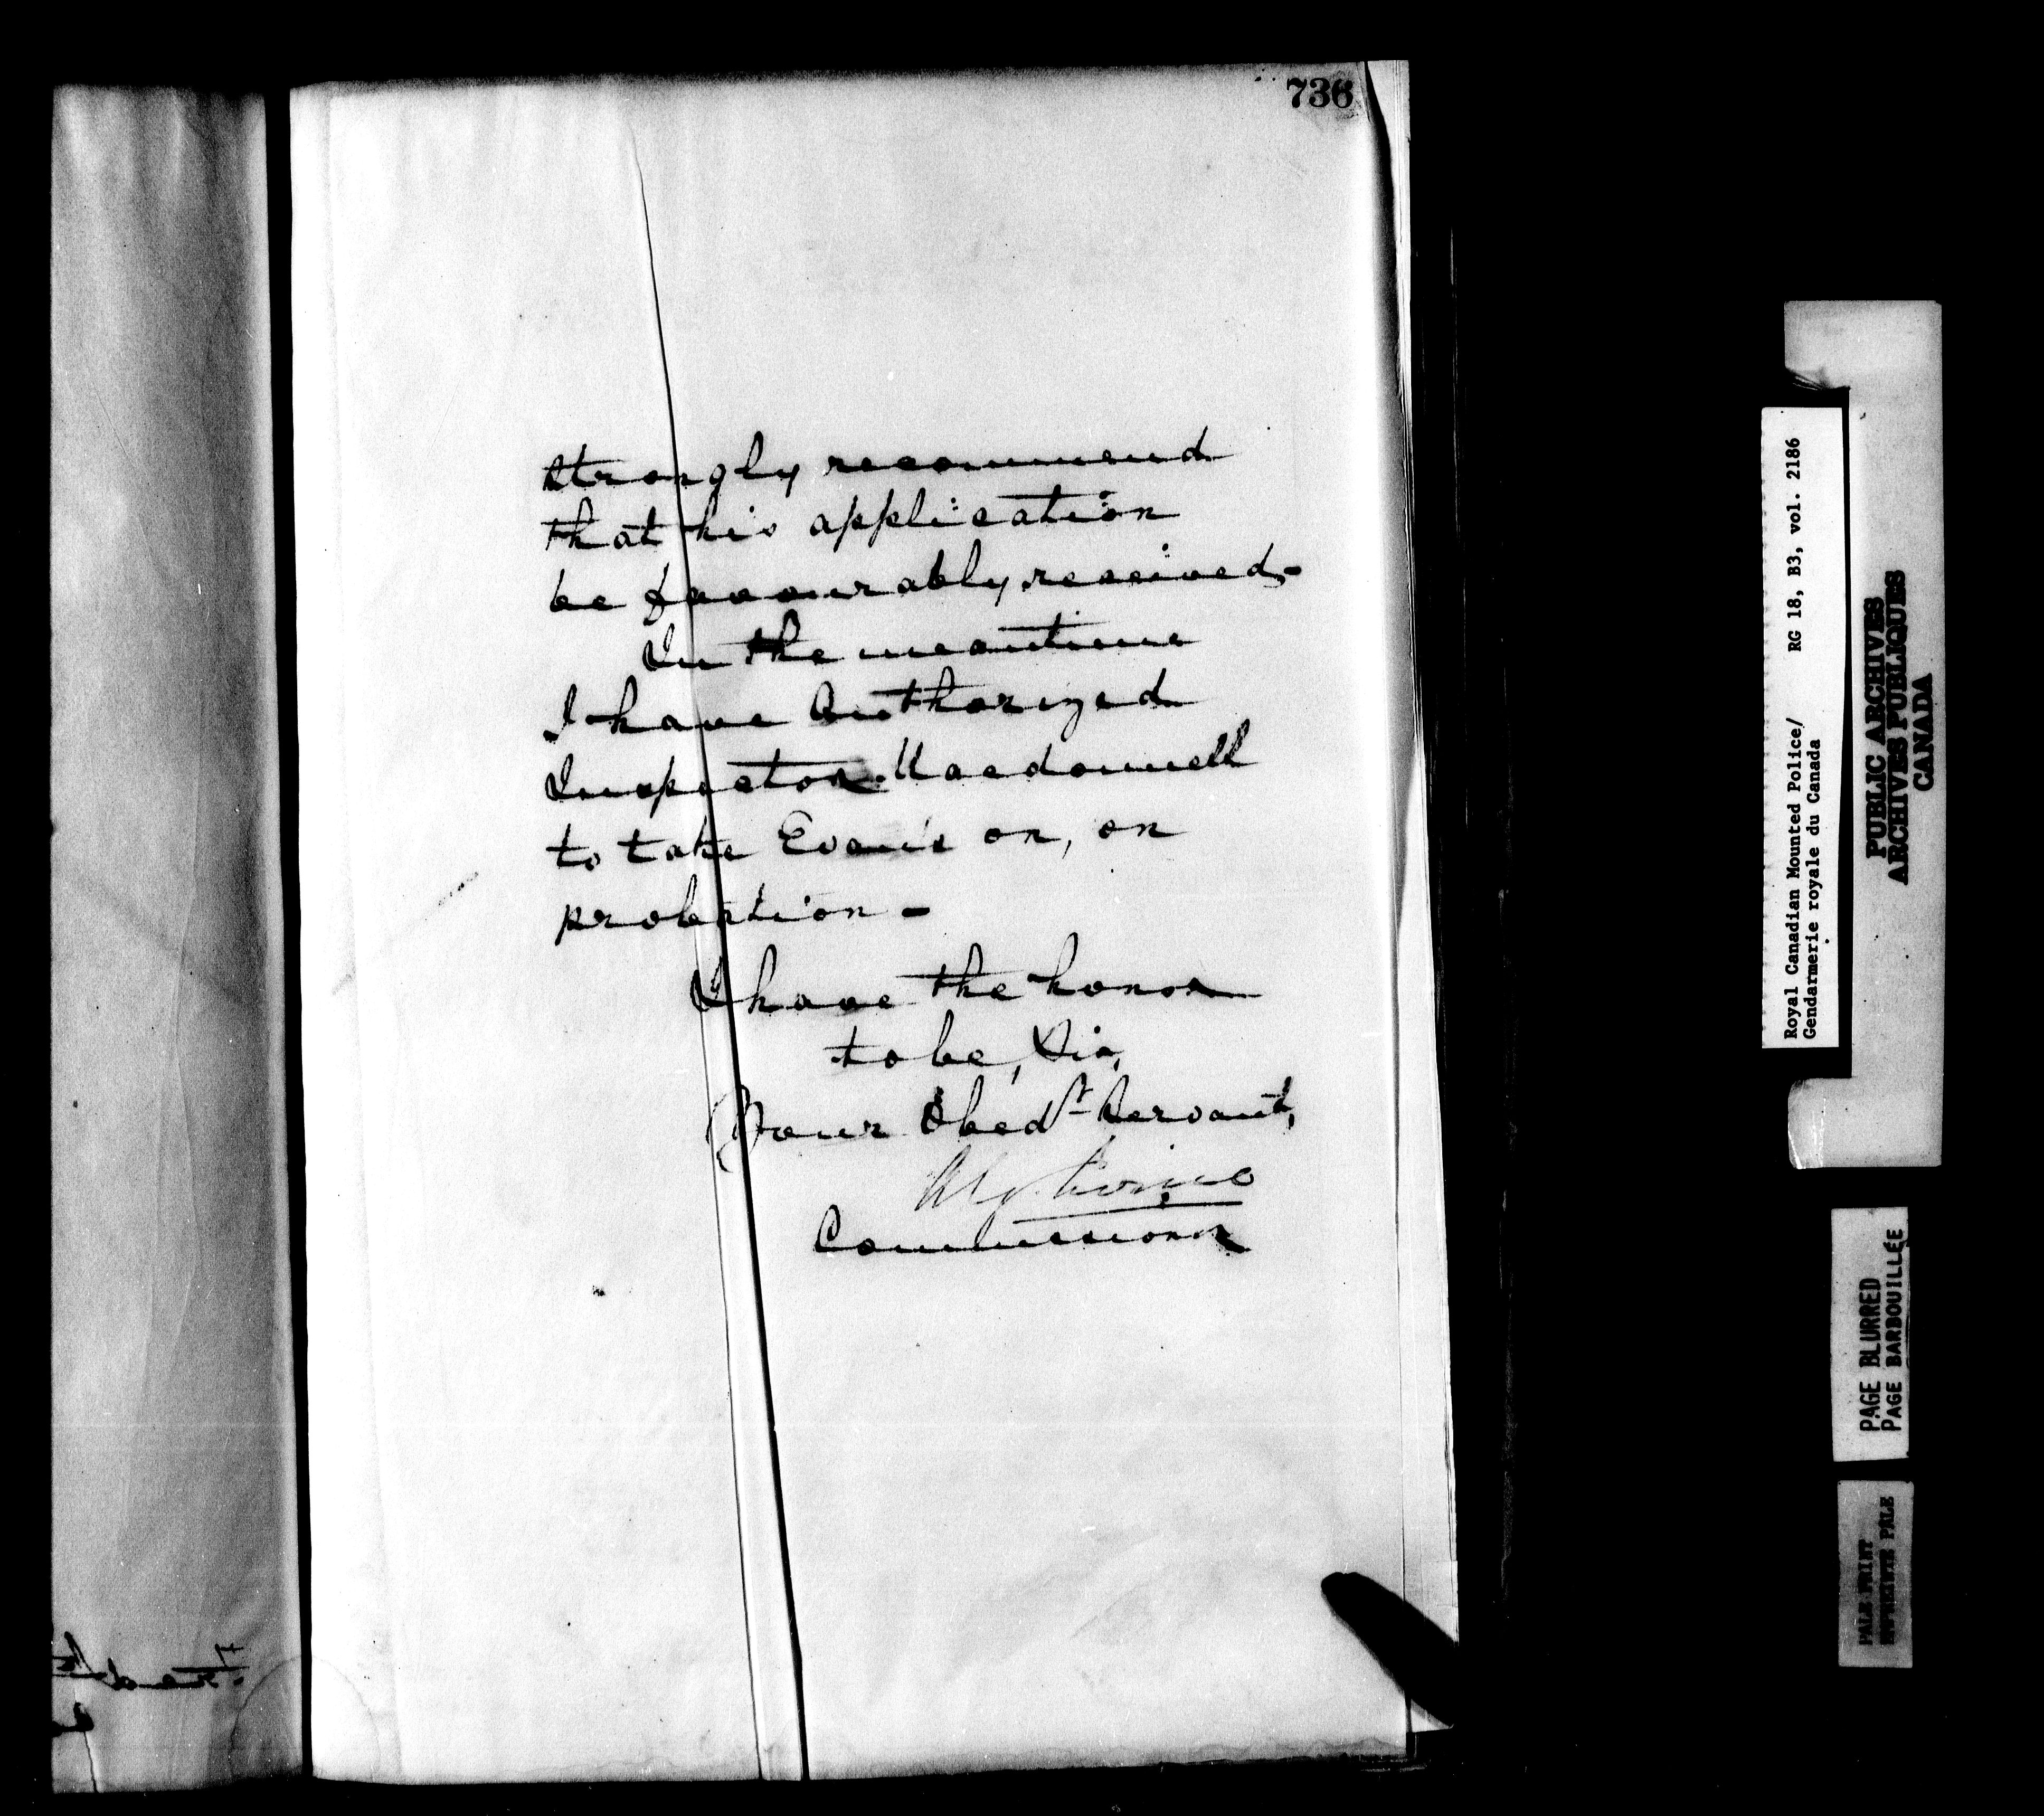 736
strongly recommend
that his application
be favourably received. -
In the meantime
I have authorized
Inspector Macdonnell
to take Evans on, on
probation -
I have the honor
to be, Sir,
Your Obedt Servant,
Commissioner
Royal Canadian Mounted Police/ RG 18, B3, vol. 2186
Gendarmerie royale du Canada
PUBLIC ARCHIVES
ARCHIVES PUBLIQUES
CANADA
PAGE BLURRED
PAGE BARBOUILLÉE
PALE PRINT
IMPRIMÉE PÂLE